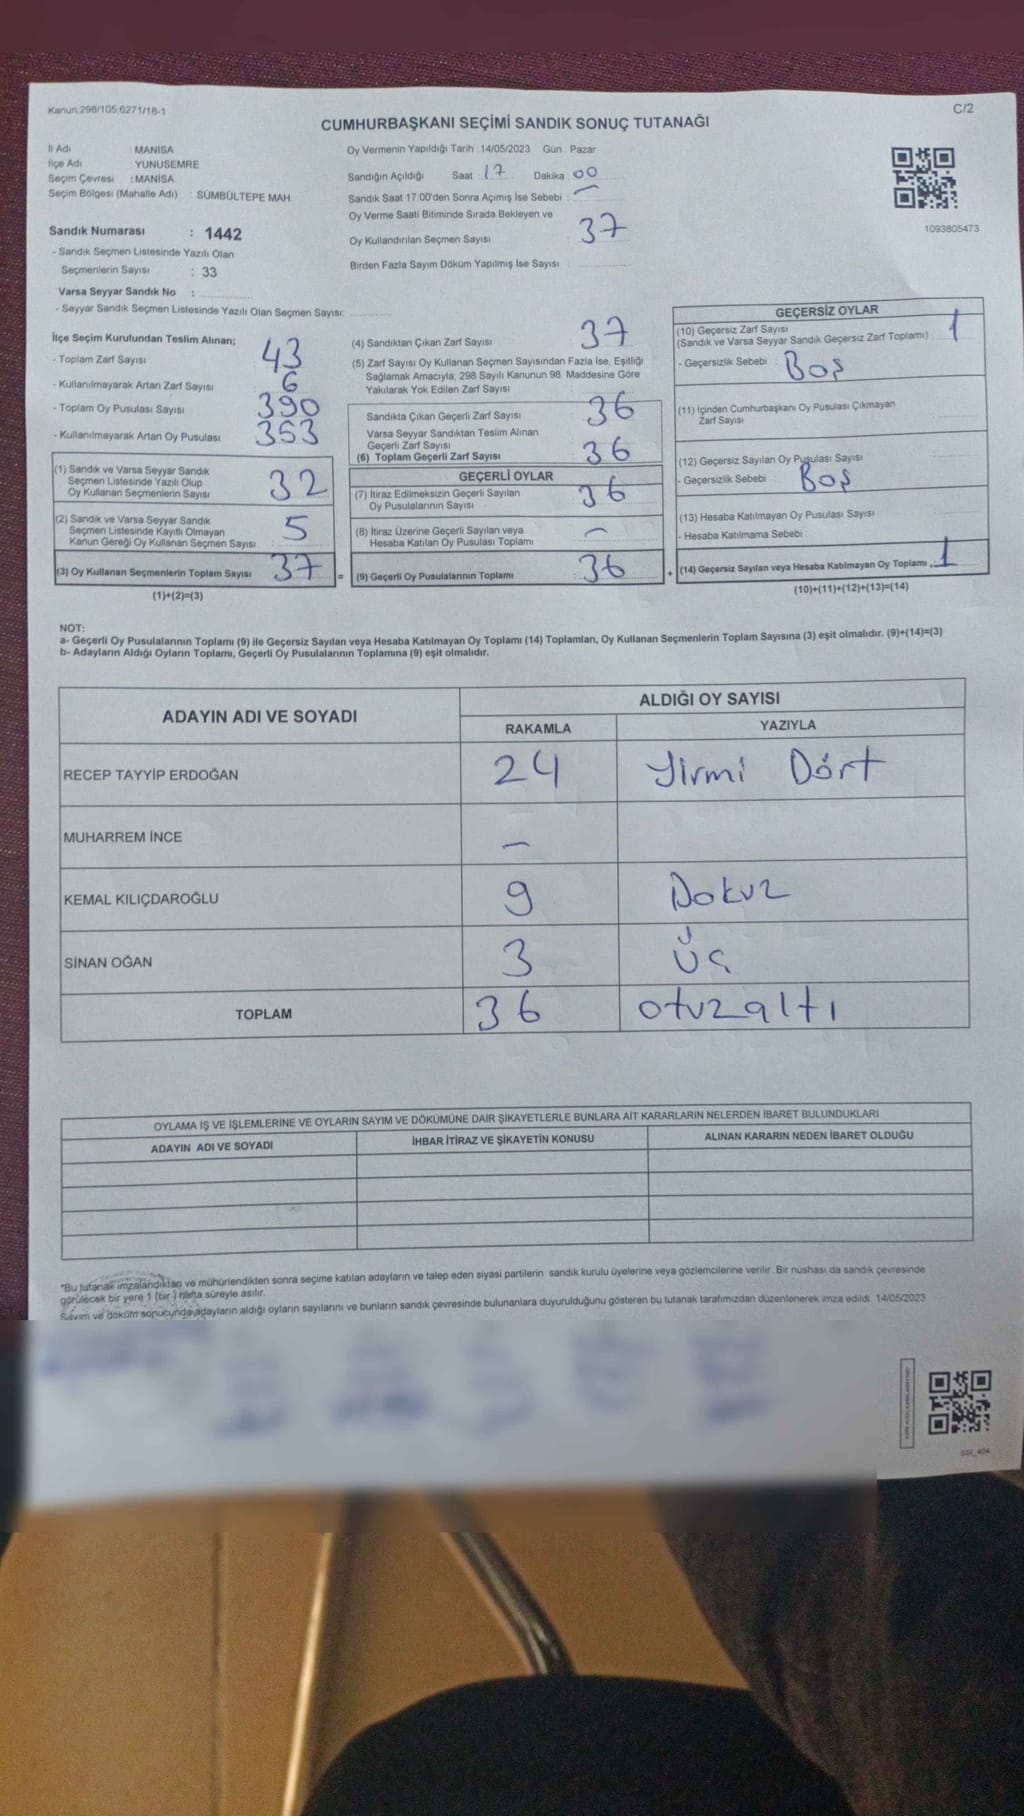 Kanun:298/105,6271/18-1
C/2
CUMHURBAŞKANI SEÇİMİ SANDIK SONUÇ TUTANAĞI
İl Adı : MANİSA
İlçe Adı : YUNUSEMRE
Seçim Çevresi : MANİSA
Seçim Bölgesi (Mahalle Adı) : SÜMBÜLTEPE MAH.
Sandık Numarası : 1442
- Sandık Seçmen Listesinde Yazılı Olan
Seçmenlerin Sayısı : 33
Varsa Seyyar Sandık No :
- Seyyar Sandık Seçmen Listesinde Yazılı Olan Seçmen Sayısı:
Oy Vermenin Yapıldığı Tarih :14/05/2023 Gün : Pazar
Sandığın Açıldığı Saat : 17 Dakika : 00
Sandık Saat 17:00'den Sonra Açılmış İse Sebebi : —
Oy Verme Saati Bitiminde Sırada Bekleyen ve
Oy Kullandırılan Seçmen Sayısı 37
Birden Fazla Sayım Döküm Yapılmış İse Sayısı :
1093805473
İlçe Seçim Kurulundan Teslim Alınan;
- Toplam Zarf Sayısı 43
- Kullanılmayarak Artan Zarf Sayısı 6
- Toplam Oy Pusulası Sayısı 390
- Kullanılmayarak Artan Oy Pusulası 353
(1) Sandık ve Varsa Seyyar Sandık
Seçmen Listesinde Yazılı Olup
Oy Kullanan Seçmenlerin Sayısı 32
(2) Sandık ve Varsa Seyyar Sandık
Seçmen Listesinde Kayıtlı Olmayan
Kanun Gereği Oy Kullanan Seçmen Sayısı : 5
(3) Oy Kullanan Seçmenlerin Toplam Sayısı 37 =
(1)+(2)=(3)
(4) Sandıktan Çıkan Zarf Sayısı 37
(5) Zarf Sayısı Oy Kullanan Seçmen Sayısından Fazla İse, Eşitliği
Sağlamak Amacıyla, 298 Sayılı Kanunun 98. Maddesine Göre
Yakılarak Yok Edilen Zarf Sayısı
Sandıkta Çıkan Geçerli Zarf Sayısı 36
Varsa Seyyar Sandıktan Teslim Alınan
Geçerli Zarf Sayısı
(6) Toplam Geçerli Zarf Sayısı 36
GEÇERLİ OYLAR
(7) İtiraz Edilmeksizin Geçerli Sayılan
Oy Pusulalarının Sayısı 36
(8) İtiraz Üzerine Geçerli Sayılan veya
Hesaba Katılan Oy Pusulası Toplamı —
(9) Geçerli Oy Pusulalarının Toplamı 36 +
GEÇERSİZ OYLAR
(10) Geçersiz Zarf Sayısı
(Sandık ve Varsa Seyyar Sandık Geçersiz Zarf Toplamı) 1
- Geçersizlik Sebebi : Boş
(11) İçinden Cumhurbaşkanı Oy Pusulası Çıkmayan
Zarf Sayısı
(12) Geçersiz Sayılan Oy Pusulası Sayısı
- Geçersizlik Sebebi : Boş
(13) Hesaba Katılmayan Oy Pusulası Sayısı
- Hesaba Katılmama Sebebi :
(14) Geçersiz Sayılan veya Hesaba Katılmayan Oy Toplamı 1
(10)+(11)+(12)+(13)=(14)
NOT:
a- Geçerli Oy Pusulalarının Toplamı (9) ile Geçersiz Sayılan veya Hesaba Katılmayan Oy Toplamı (14) Toplamları, Oy Kullanan Seçmenlerin Toplam Sayısına (3) eşit olmalıdır. (9)+(14)=(3)
b- Adayların Aldığı Oyların Toplamı, Geçerli Oy Pusulalarının Toplamına (9) eşit olmalıdır.
ADAYIN ADI VE SOYADI ALDIĞI OY SAYISI
RAKAMLA YAZIYLA
RECEP TAYYİP ERDOĞAN 24 Yirmi Dört
MUHARREM İNCE —
KEMAL KILIÇDAROĞLU 9 Dokuz
SİNAN OĞAN 3 Üç
TOPLAM 36 otuzaltı
OYLAMA İŞ VE İŞLEMLERİNE VE OYLARIN SAYIM VE DÖKÜMÜNE DAİR ŞİKAYETLERLE BUNLARA AİT KARARLARIN NELERDEN İBARET BULUNDUKLARI
ADAYIN ADI VE SOYADI İHBAR İTİRAZ VE ŞİKAYETİN KONUSU ALINAN KARARIN NEDEN İBARET OLDUĞU
*Bu tutanak imzalandıktan ve mühürlendikten sonra seçime katılan adayların ve talep eden siyasi partilerin sandık kurulu üyelerine veya gözlemcilerine verilir. Bir nüshası da sandık çevresinde
görülecek bir yere 1 (bir ) hafta süreyle asılır.
Sayım ve döküm sonucunda adayların aldığı oyların sayılarını ve bunların sandık çevresinde bulunanlara duyurulduğunu gösteren bu tutanak tarafımızdan düzenlenerek imza edildi. 14/05/2023
SSI_404